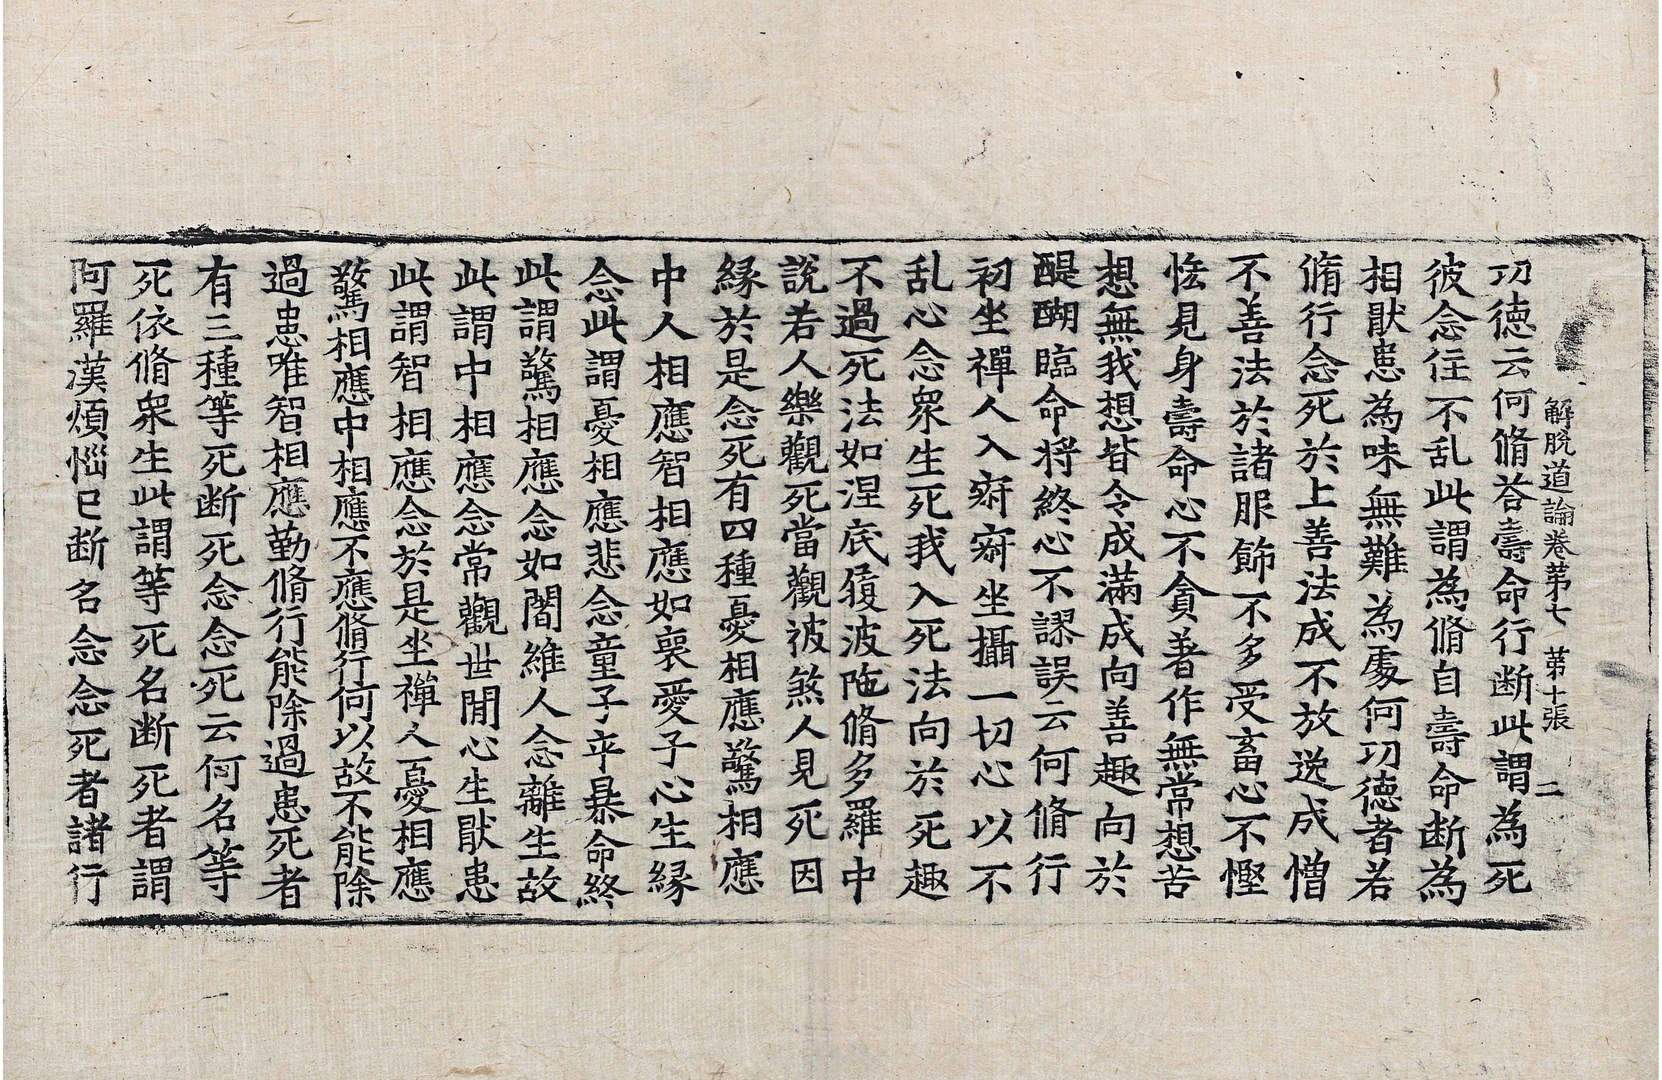 解脫道論卷第七　第十張　二
功徳云何脩荅壽命行断此謂為死
彼念住不乱此謂為脩自壽命断為
相猒患為味無難為處何功徳者若
脩行念死於上善法成不放逸成憎
不善法於諸服餙不多受畜心不慳
悋見身壽命心不貪著作無常想苦
想無我想皆令成滿成向善趣向於
醍醐臨命将終心不謬誤云何脩行
初坐禪人入寂寂坐攝一切心以不
乱心念衆生死我入死法向於死趣
不過死法如涅底履波陁脩多羅中
說若人樂觀死當觀被煞人見死因
縁於是念死有四種憂相應驚相應
中人相應智相應如喪愛子心生縁
念此謂憂相應悲念童子卒暴命終
此謂驚相應念如闍維人念離生故
此謂中相應念常觀世閒心生猒患
此謂智相應念於是坐禪人憂相應
驚相應中相應不應脩行何以故不能除
過患唯智相應勤脩行能除過患死者
有三種等死断死念念死云何名等
死依脩衆生此謂等死名断死者謂
阿羅漢煩惱已断名念念死者諸行